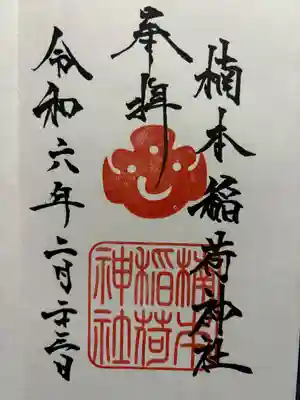 楠本稲荷神社
奉拝
令和六年二月二十三日
楠本
稲荷
神社